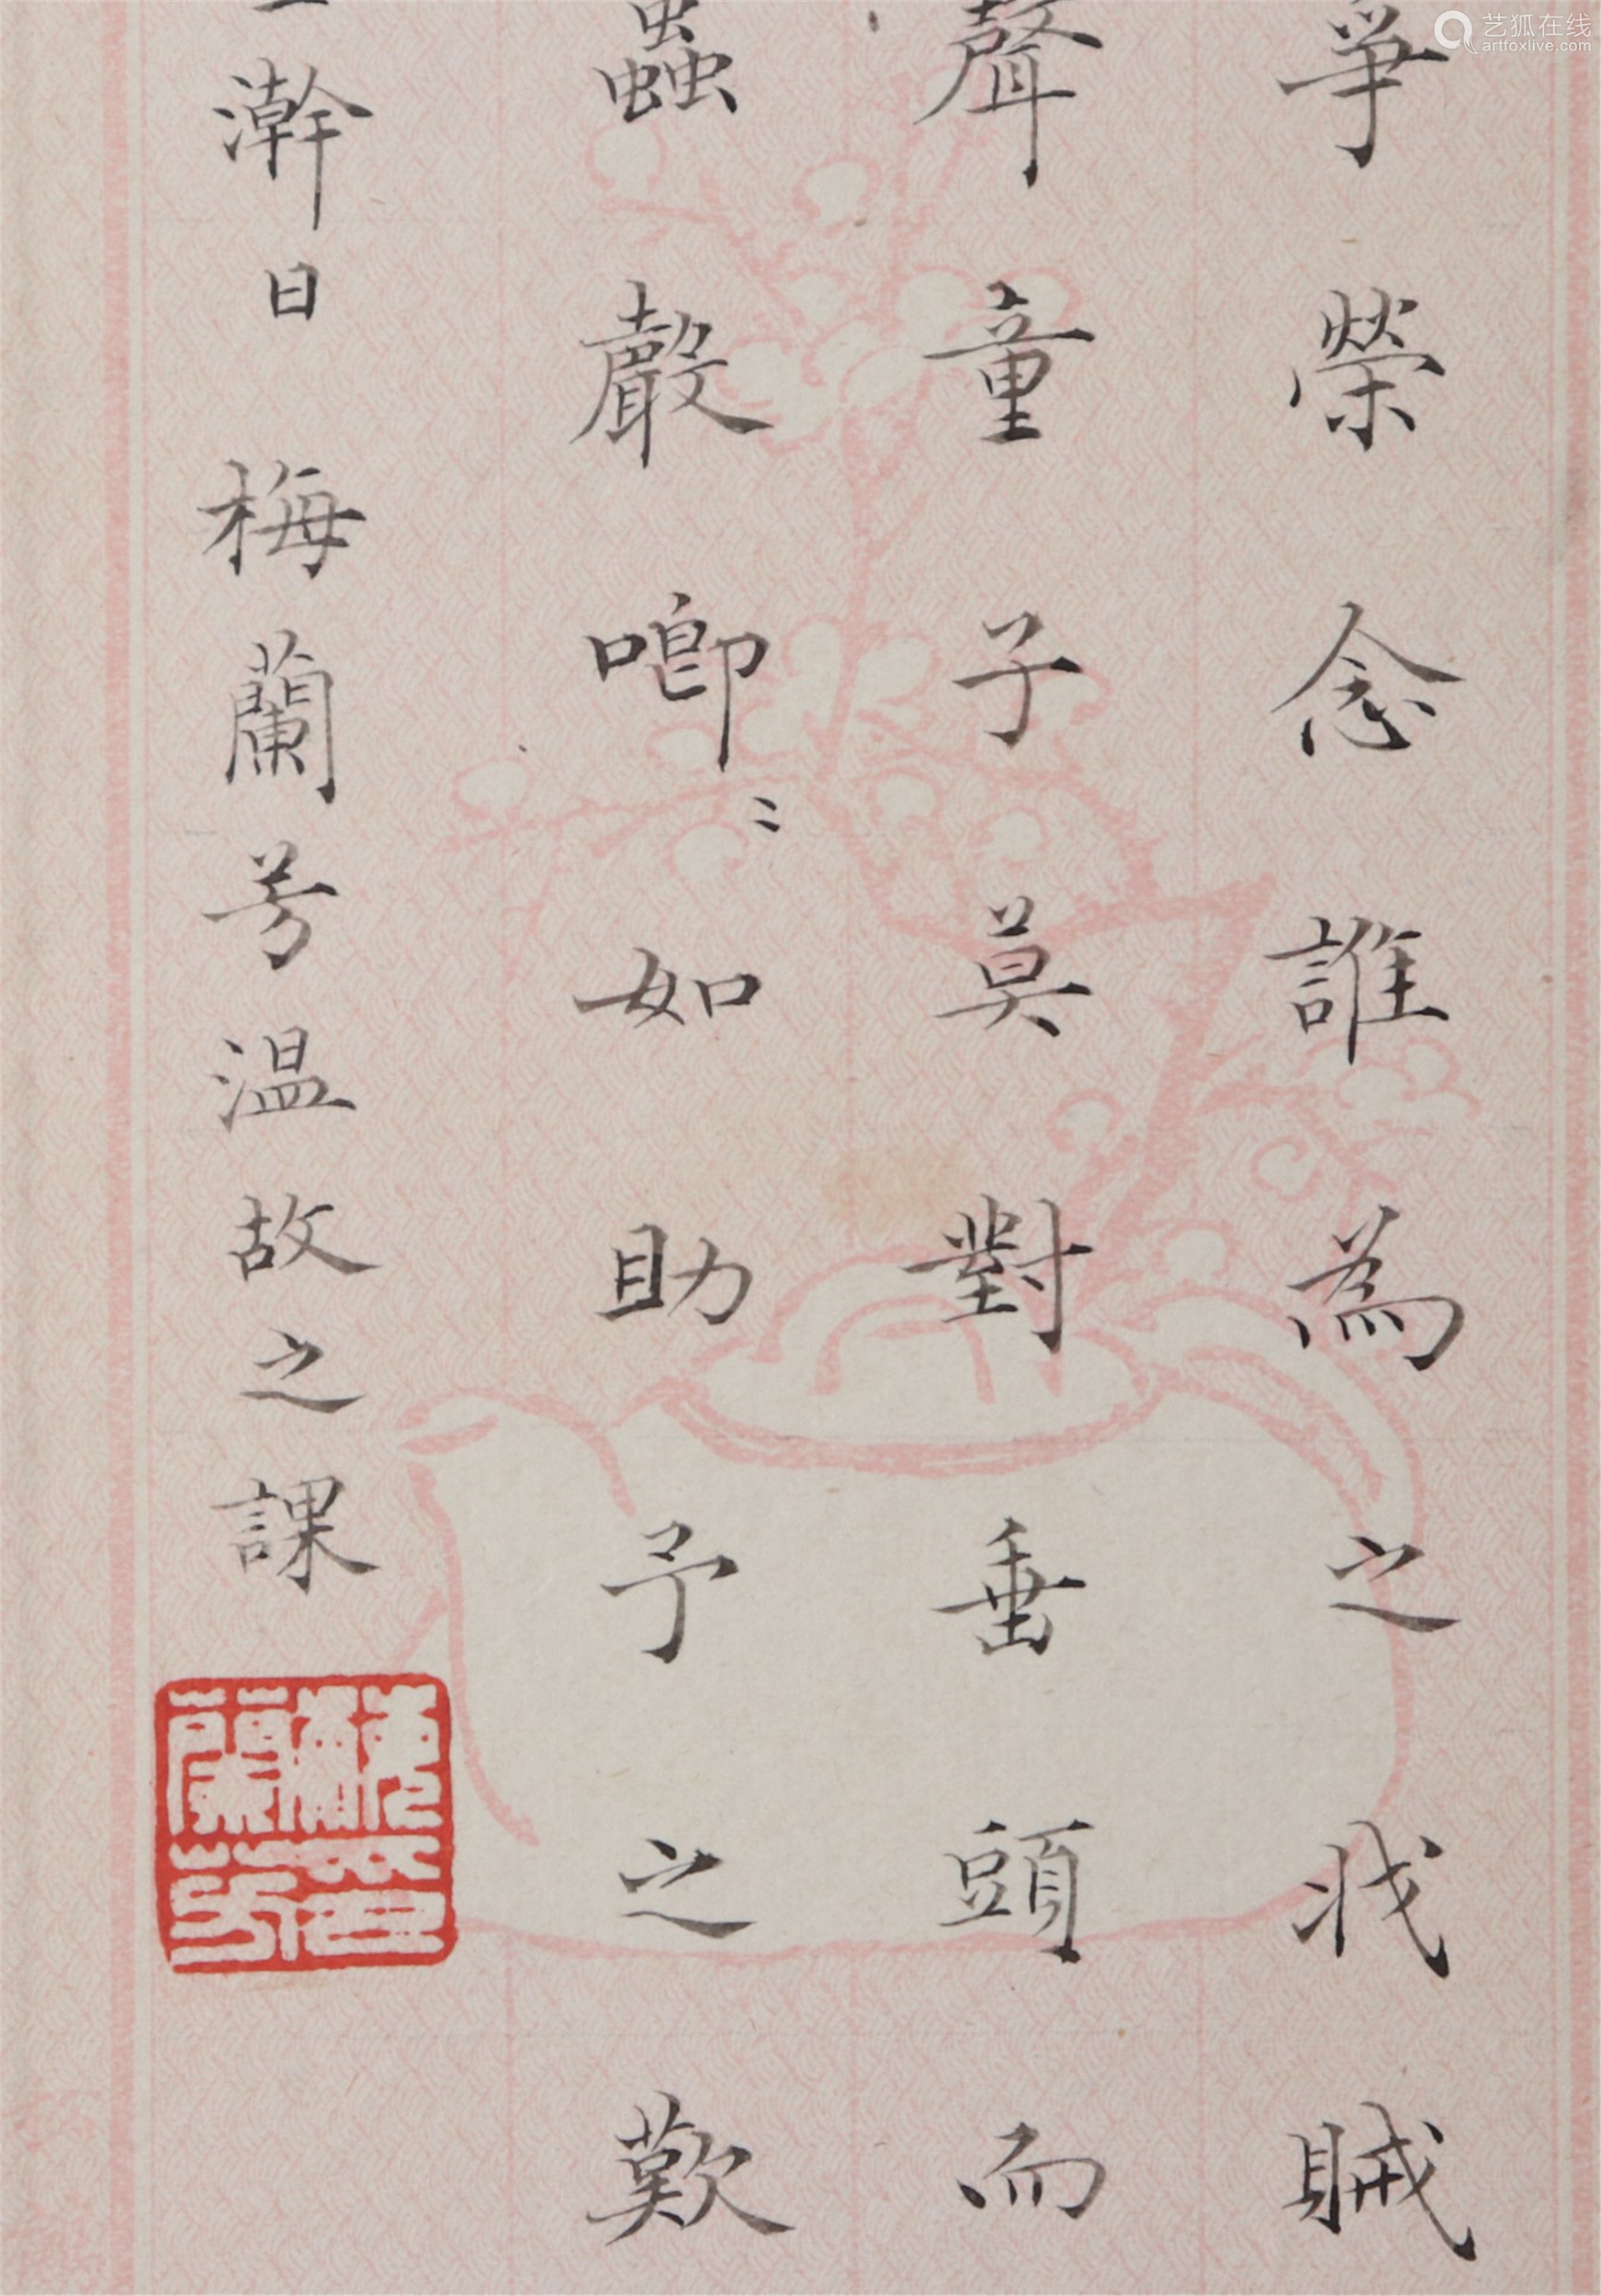 爭榮念誰為之戕賊
聲童子莫對垂頭而
蟲聲唧〻如助予之歎
澣日 梅蘭芳温故之課
艺狐在线
artfoxlive.com